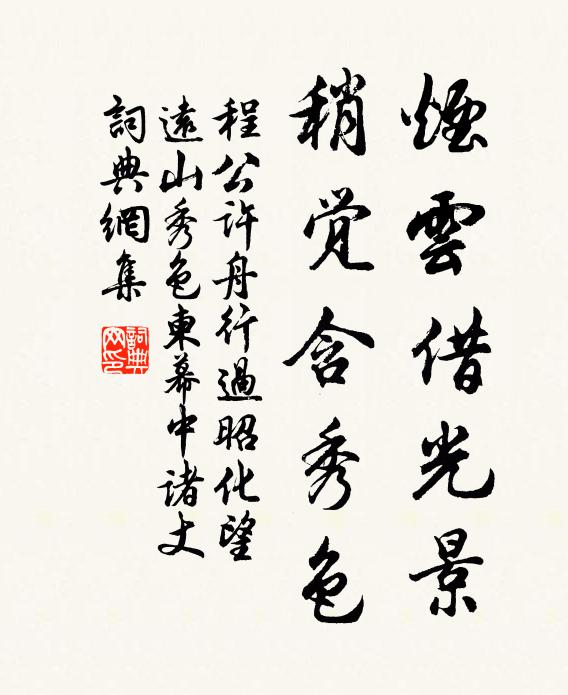 煙雲借光景
稍觉含秀色
程公许舟行過昭化望
遠山秀色東幕中諸丈
詞典網集
詞典
网印